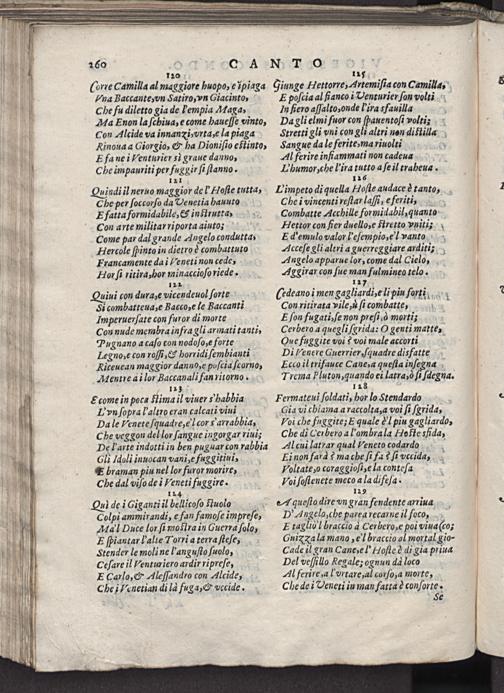 260 CANTO
120
Corre Camilla al maggiore huopo, e ĩpiaga
Vna Baccante, vn Satiro, vn Giacinto,
Che fu diletto gia de l'empia Maga,
Ma Enon la schiua, e come hauesse vinto,
Con Alcide va innanzi, vrta, e la piaga
Rinoua a Giorgio, & ha Dionisio estinto,
E fa ne i Venturier sì graue danno,
Che impauriti per fuggir si stanno.
121
Quindi il neruo maggior de l'Hoste tutta,
Che per soccorso da Venetia hauuto
E fatta formidabile, & instrutta,
Con arte militar riporta aiuto;
Come par dal grande Angelo condutta,
Hercole spinto in dietro è combattuto
Francamente da i Veneti non cede,
Hor si ritira, hor minaccioso riede.
122
Quiui con dura, e vicendeuol sorte
Si combatteua, e Bacco, e le Baccanti
Imperuersate con furor di morte
Con nude membra infra gli armati tanti,
Pugnano a caso con nodoso, e forte
Legno, e con rossi, & horridi sembianti
Riceuean maggior danno, e poscia scorno,
Mentre a i lor Baccanali fan ritorno.
123
E come in poca stima il viuer s'habbia
L'vn sopra l'altro eran calcati viui
Da le Venete squadre, e'l cor s'arrabbia,
Che veggon del lor sangue ingorgar riui;
De l'arte indotti in ben puguar con rabbia
Gli Idoli inuocan vani, e fuggitiui,
E braman piu nel lor furor morire,
Che dal viso de i Veneti fuggire.
124
Quì de i Giganti il bellicoso stuolo
Colpi ammirandi, e fan famose imprese,
Ma'l Duce lor si mostra in Guerra solo,
E spiantar l'alte Torri a terra stese,
Stender le moli ne l'angusto suolo,
Cesare il Venturiero ardir riprese,
E Carlo, & Alessandro con Alcide,
Che i Venetian di là fuga, & vccide.
125
Giunge Hettorre, Artemisia con Camilla,
E poscia al fianco i Venturier son volti
In fiero assalto, onde l'ira sfauilla
Da gli elmi fuor con spauentosi volti;
Stretti gli vni con gli altri non distilla
Sangue da le ferite, ma riuolti
Al ferire infiammati non cadeua
L'humor, che l'ira tutto a se il traheua.
126
L'impeto di quella Hoste audace è tanto,
Che i vincenti restar lassi, e feriti,
Combatte Acchille formidabil, quanto
Hettor con fier duello, e stretto vniti;
E d'emulo valor l'esempio, e'l vanto
Accese gli altri a guerreggiare arditi;
Angelo apparue lor, come dal Cielo,
Aggirar con sue man fulmineo telo.
127
Cedeano i men gagliardi, e li piu forti
Con ritirata vile, ò si combatte,
E son fugati, se non presi, ò morti;
Cerbero a quegli sgrida: O genti matte,
Que fuggite voi è voi male accorti
Di Venere Guerrier, squadre disfatte
Ecco il trifauce Cane, a questa insegna
Trema Pluton, quando ei latra, ò si sdegna.
128
Fermateui soldati, hor lo Stendardo
Gia vi chiama a raccolta, a voi si sgrida,
Voi che fuggite; E quale è'l piu gagliardo,
Che di Cerbero a l'ombra la Hoste sfida,
Al cui latrar qual Veneto codardo
Ei non farà è ma che si fa è si vccida,
Voltate, o coraggiosi, e la contesa
Voi sostenete meco a la difesa.
129
A questo dire vn gran fendente arriua
D'Angelo, che parea recarne il foco,
E tagliò'l braccio à Cerbero, e poi viua (co;
Guizza la mano, e'l braccio al mortal gio-
Cade il gran Cane, e l'Hoste è di gia priua
Del vessillo Regale; ognun dà loco
Al ferire, a l'vrtare, al corso, a morte,
Che de i Veneti in man fatta è consorte.
Se